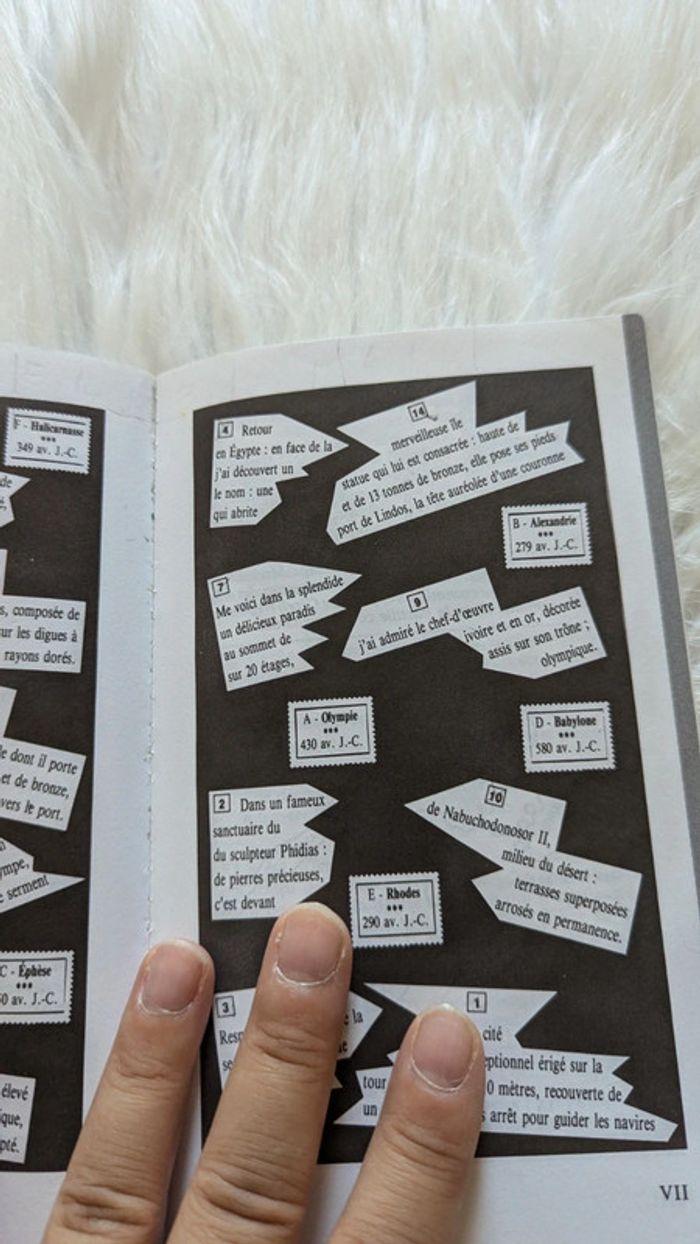 F - Halicarnasse
***
349 av. J.-C.
de
s, composée de
ur les digues à
rayons dorés.
le dont il porte
et de bronze,
vers le port.
ympe,
e serment
C - Éphèse
***
0 av. J.-C.
élevé
ique,
pté.
4 Retour
en Égypte : en face de la
j'ai découvert un
le nom : une
qui abrite
14
merveilleuse île
statue qui lui est consacrée : haute de
et de 13 tonnes de bronze, elle pose ses pieds
port de Lindos, la tête auréolée d'une couronne
B - Alexandrie
***
279 av. J.-C.
7
Me voici dans la splendide
un délicieux paradis
au sommet de
sur 20 étages,
9
j'ai admiré le chef-d'œuvre
ivoire et en or, décorée
assis sur son trône ;
olympique.
A - Olympie
***
430 av. J.-C.
D - Babylone
***
580 av. J.-C.
2 Dans un fameux
sanctuaire du
du sculpteur Phidias :
de pierres précieuses,
c'est devant
10
de Nabuchodonosor II,
milieu du désert :
terrasses superposées
arrosés en permanence.
E - Rhodes
***
290 av. J.-C.
3
Resp
se
la
1
cité
eptionnel érigé sur la
tour
0 mètres, recouverte de
un
s arrêt pour guider les navires
VII